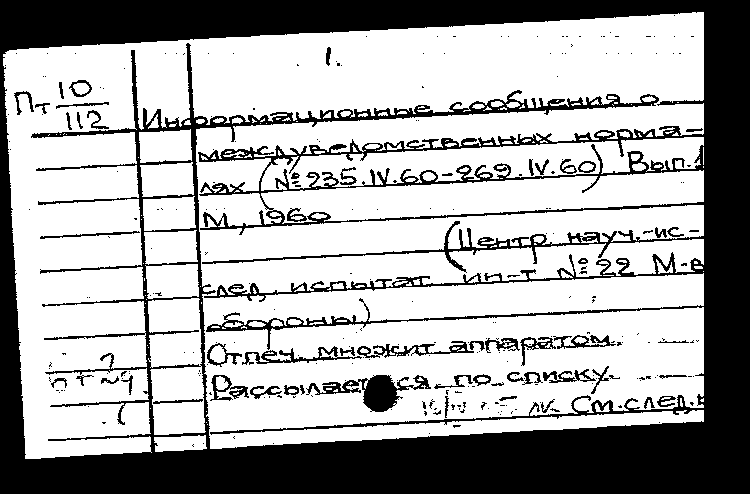 1.
Пт 10/112
Информационные сообщения о
междуведомственных норма-
лях (№235.IV.60-269.IV.60) Вып.1
М., 1960
(Центр науч.-ис-
след. испытат ин-т №22 М-в
обороны)
Отпеч. множит аппаратом.
Рассылается по списку.
См. след.к